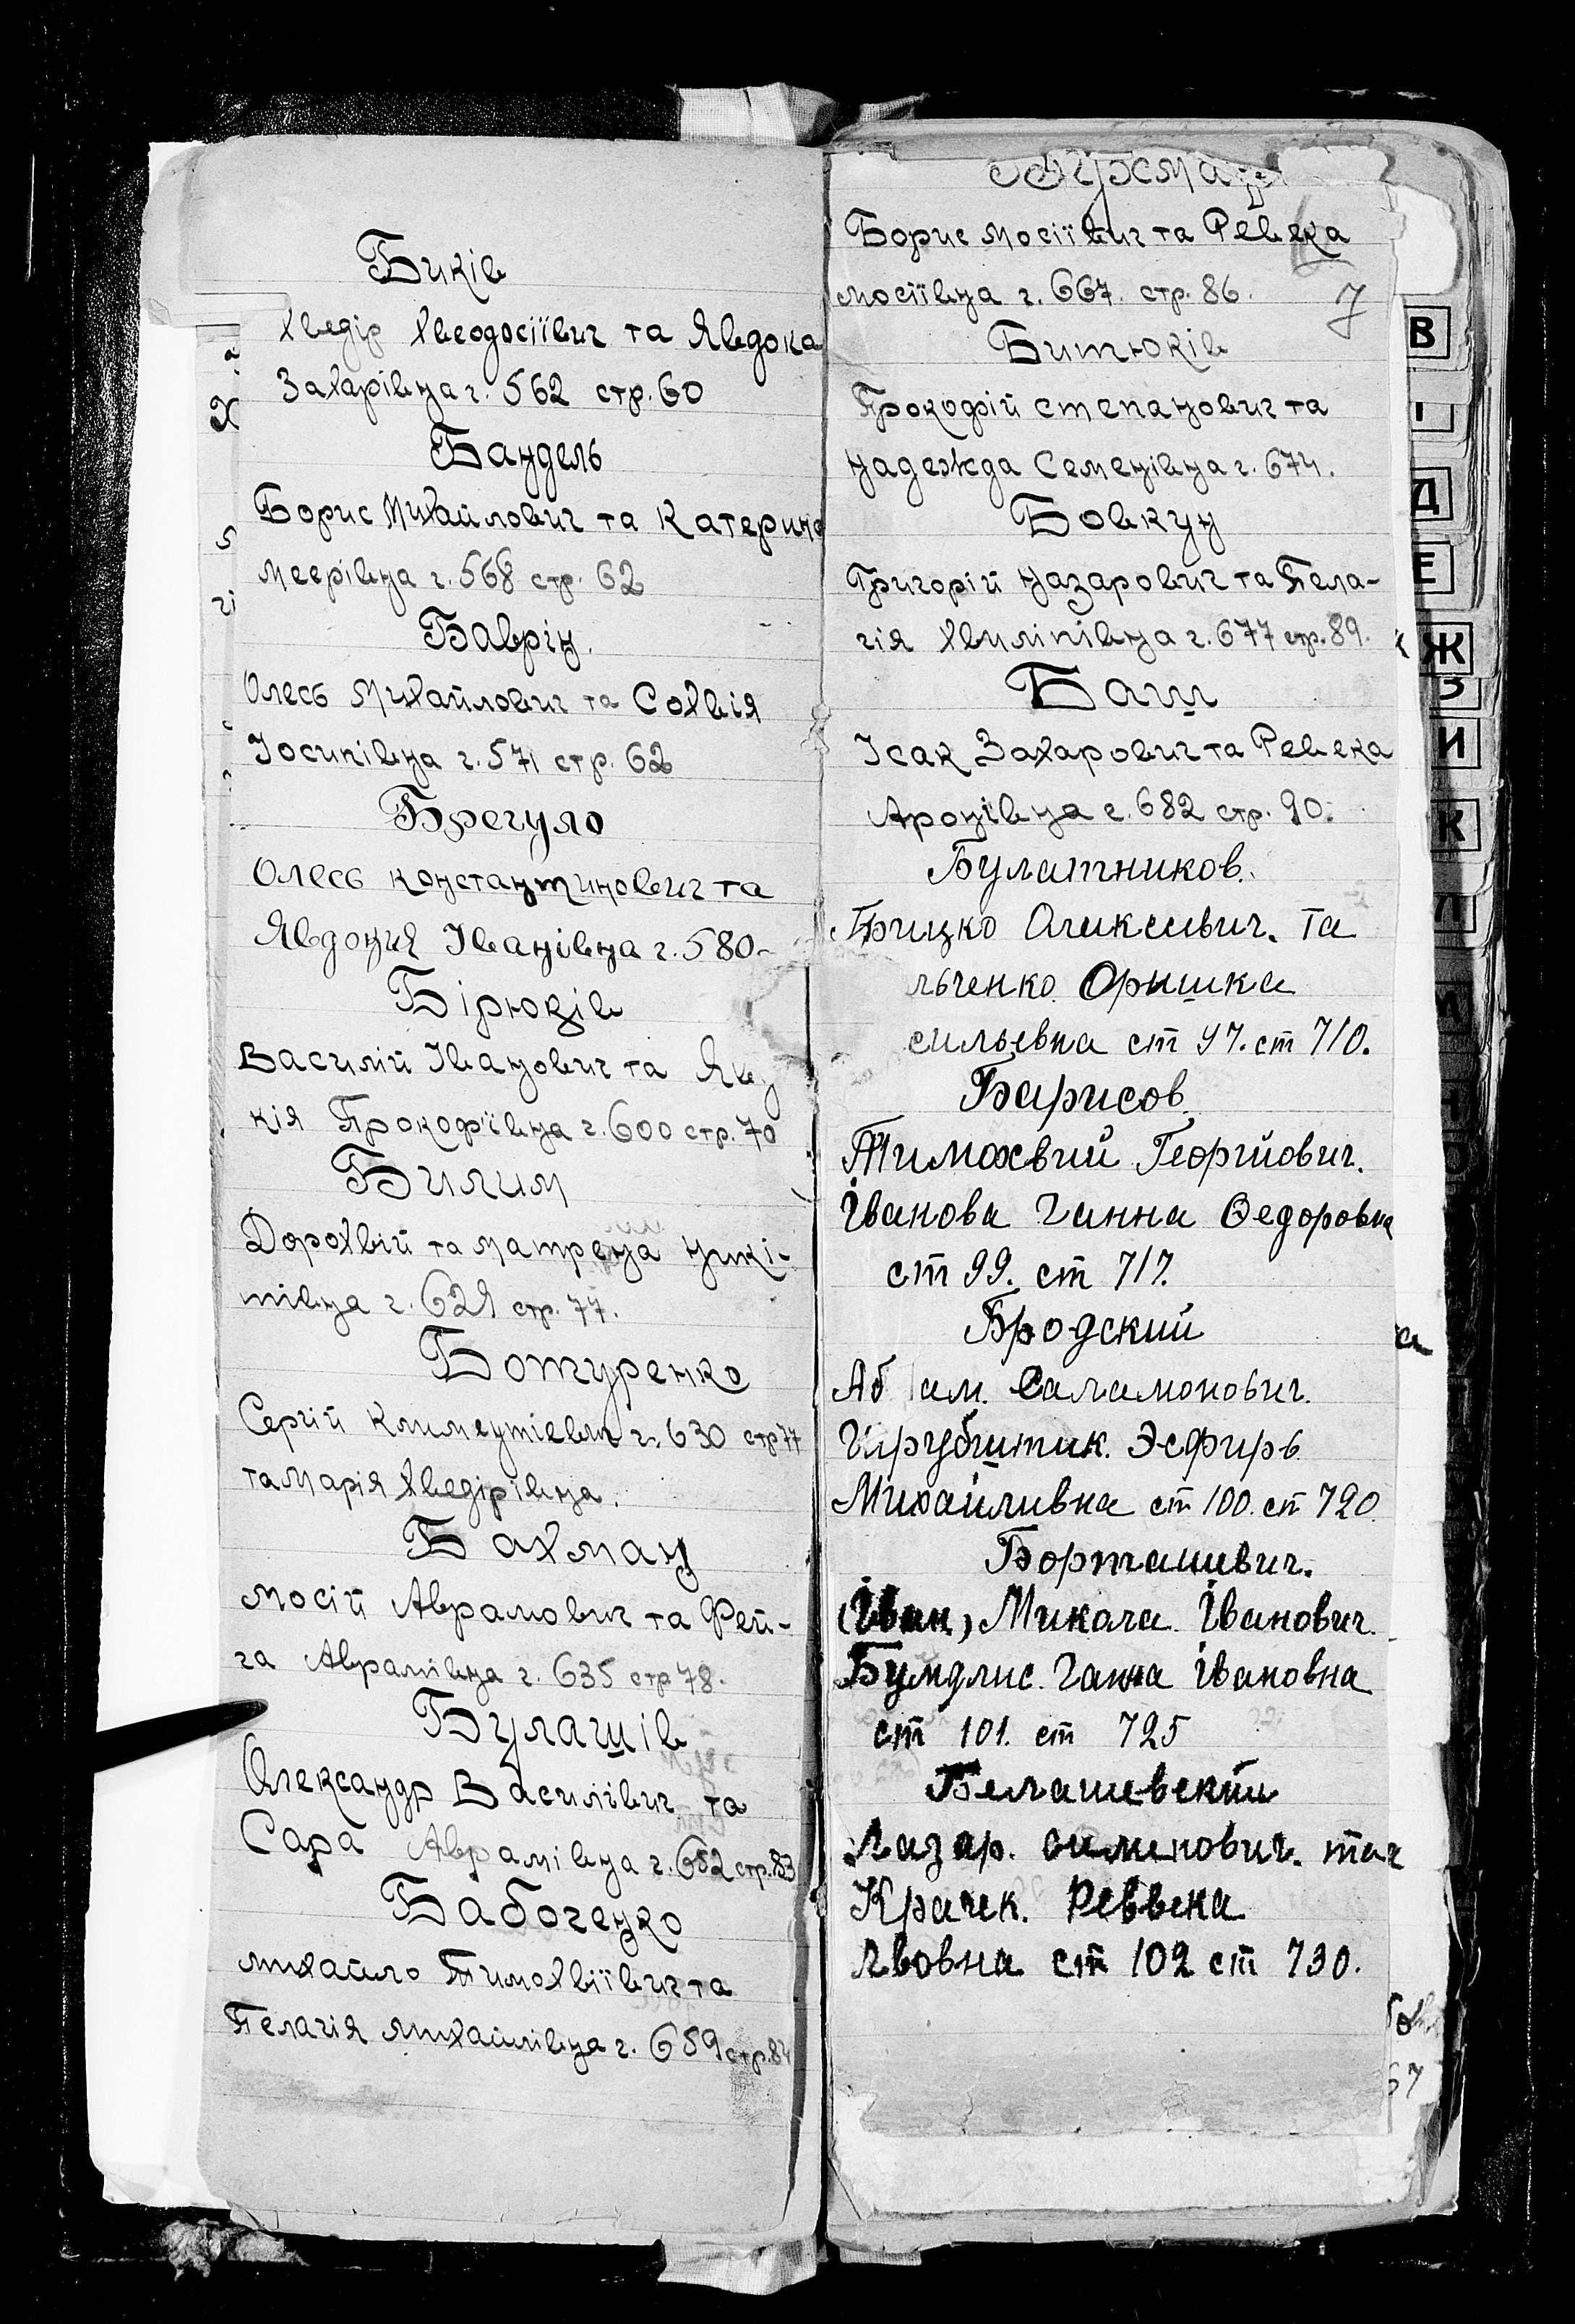 Биків
Хведір Хвеодосіївич та Явдока
Захарівна г. 562 стр. 60
Бандель
Борис Михайлович та Катерина
Меєрівна г. 568 стр. 62
Баврін.
Олесь Михайлович та Сохвія
Йосипівна г. 571 стр. 62
Брегуло
Олесь Константинович та
Явдонія Іванівна г. 580
Бірюків
Василій Іванович та Яв
кія Прокофівна г. 600 стр. 70
Билим
Дорохвій та Матрена Ники-
тівна г. 629 стр. 77.
Ботуренко
Сергій Климентієвич г. 630 стр 77
та Марія Хведірівна.
Бахман
Мосій Аврамович та Фей-
га Аврамівна г. 635 стр 78.
Булашів
Олександр Василівич та
Сара Аврамівна г. 652 стр. 83
Бабоченко
Михайло Тимохвіївич та
Пелагія Михайлівна г. 659 стр. 84
Борис Мосіївич та Ревека
Мосіївна г. 667. стр. 86.
7
Битюків
Прокофій Степанович та
Надежда Семенівна г. 674.
Бовкун
Григорій Назарович та Пела-
гія Хвиліпівна г. 677 стр. 89.
Баш
Ісак Захарович та Ревека
Аронівна г. 682 стр. 90.
Булатников.
Грицко Олексиевич. та
льченко. Оришка
сильевна ст 97. ст 710.
Барисов.
Тимохвий Георгиович.
Іванова Ганна Федоровна
ст 99. ст 717.
Бродский
Аб ам. Саламонович.
Эсфирь
Михайливна ст 100. ст 720.
Борташевич.
(Іван) Микола Іванович.
Ганна Івановна
ст 101. ст 725
Белашевский
Лазар. Симонович. та
Крачек. Реввека
Львовна ст 102 ст 730.
В
Д
Е
Ж
З
И
К
Л
М
Н
О